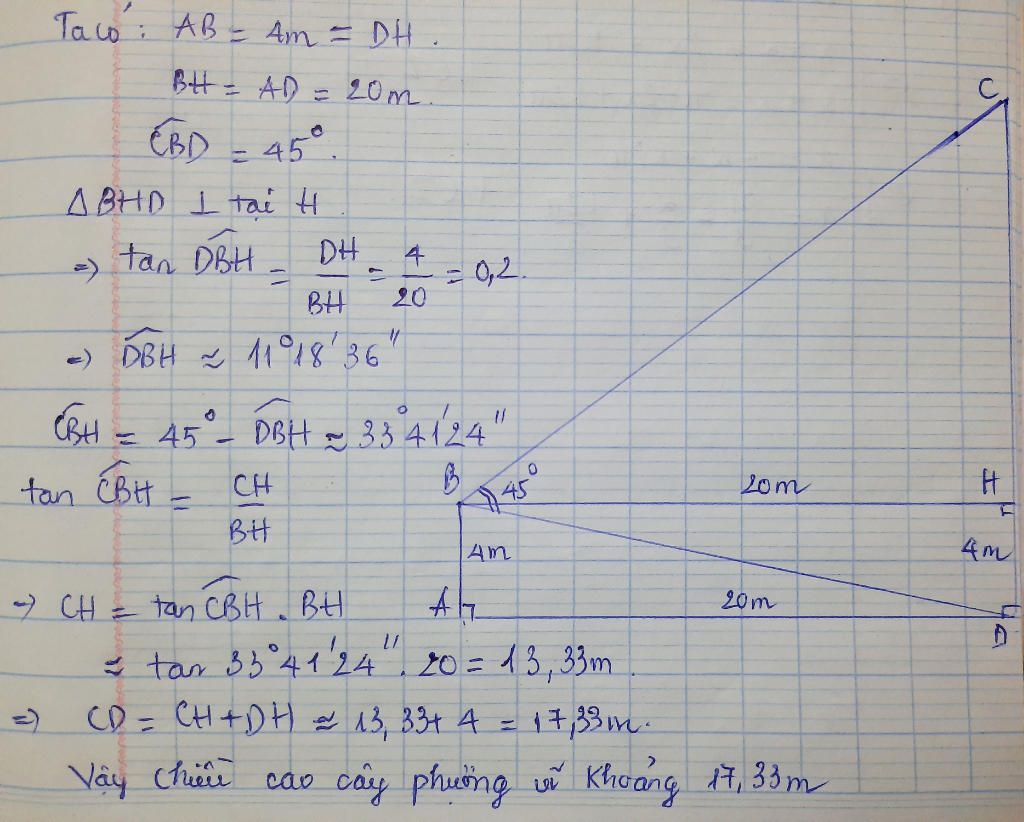 Ta có: AB = 4m = DH.
BH = AD = 20m.
C
\widehat{CBD} = 45°.
△BHD ⊥ tại H
=> tan \widehat{DBH} = \frac{DH}{BH} = \frac{4}{20} = 0,2.
=> \widehat{DBH} ≈ 11°18'36"
\widehat{CBH} = 45° - \widehat{DBH} ≈ 33°41'24"
tan \widehat{CBH} = \frac{CH}{BH}
B 45° 20m H
4m 4m
A 20m D
=> CH = tan \widehat{CBH} . BH
≈ tan 33°41'24" . 20 = 13,33m.
=> CD = CH + DH ≈ 13,33 + 4 = 17,33m.
Vậy chiều cao cây phượng vĩ khoảng 17,33m